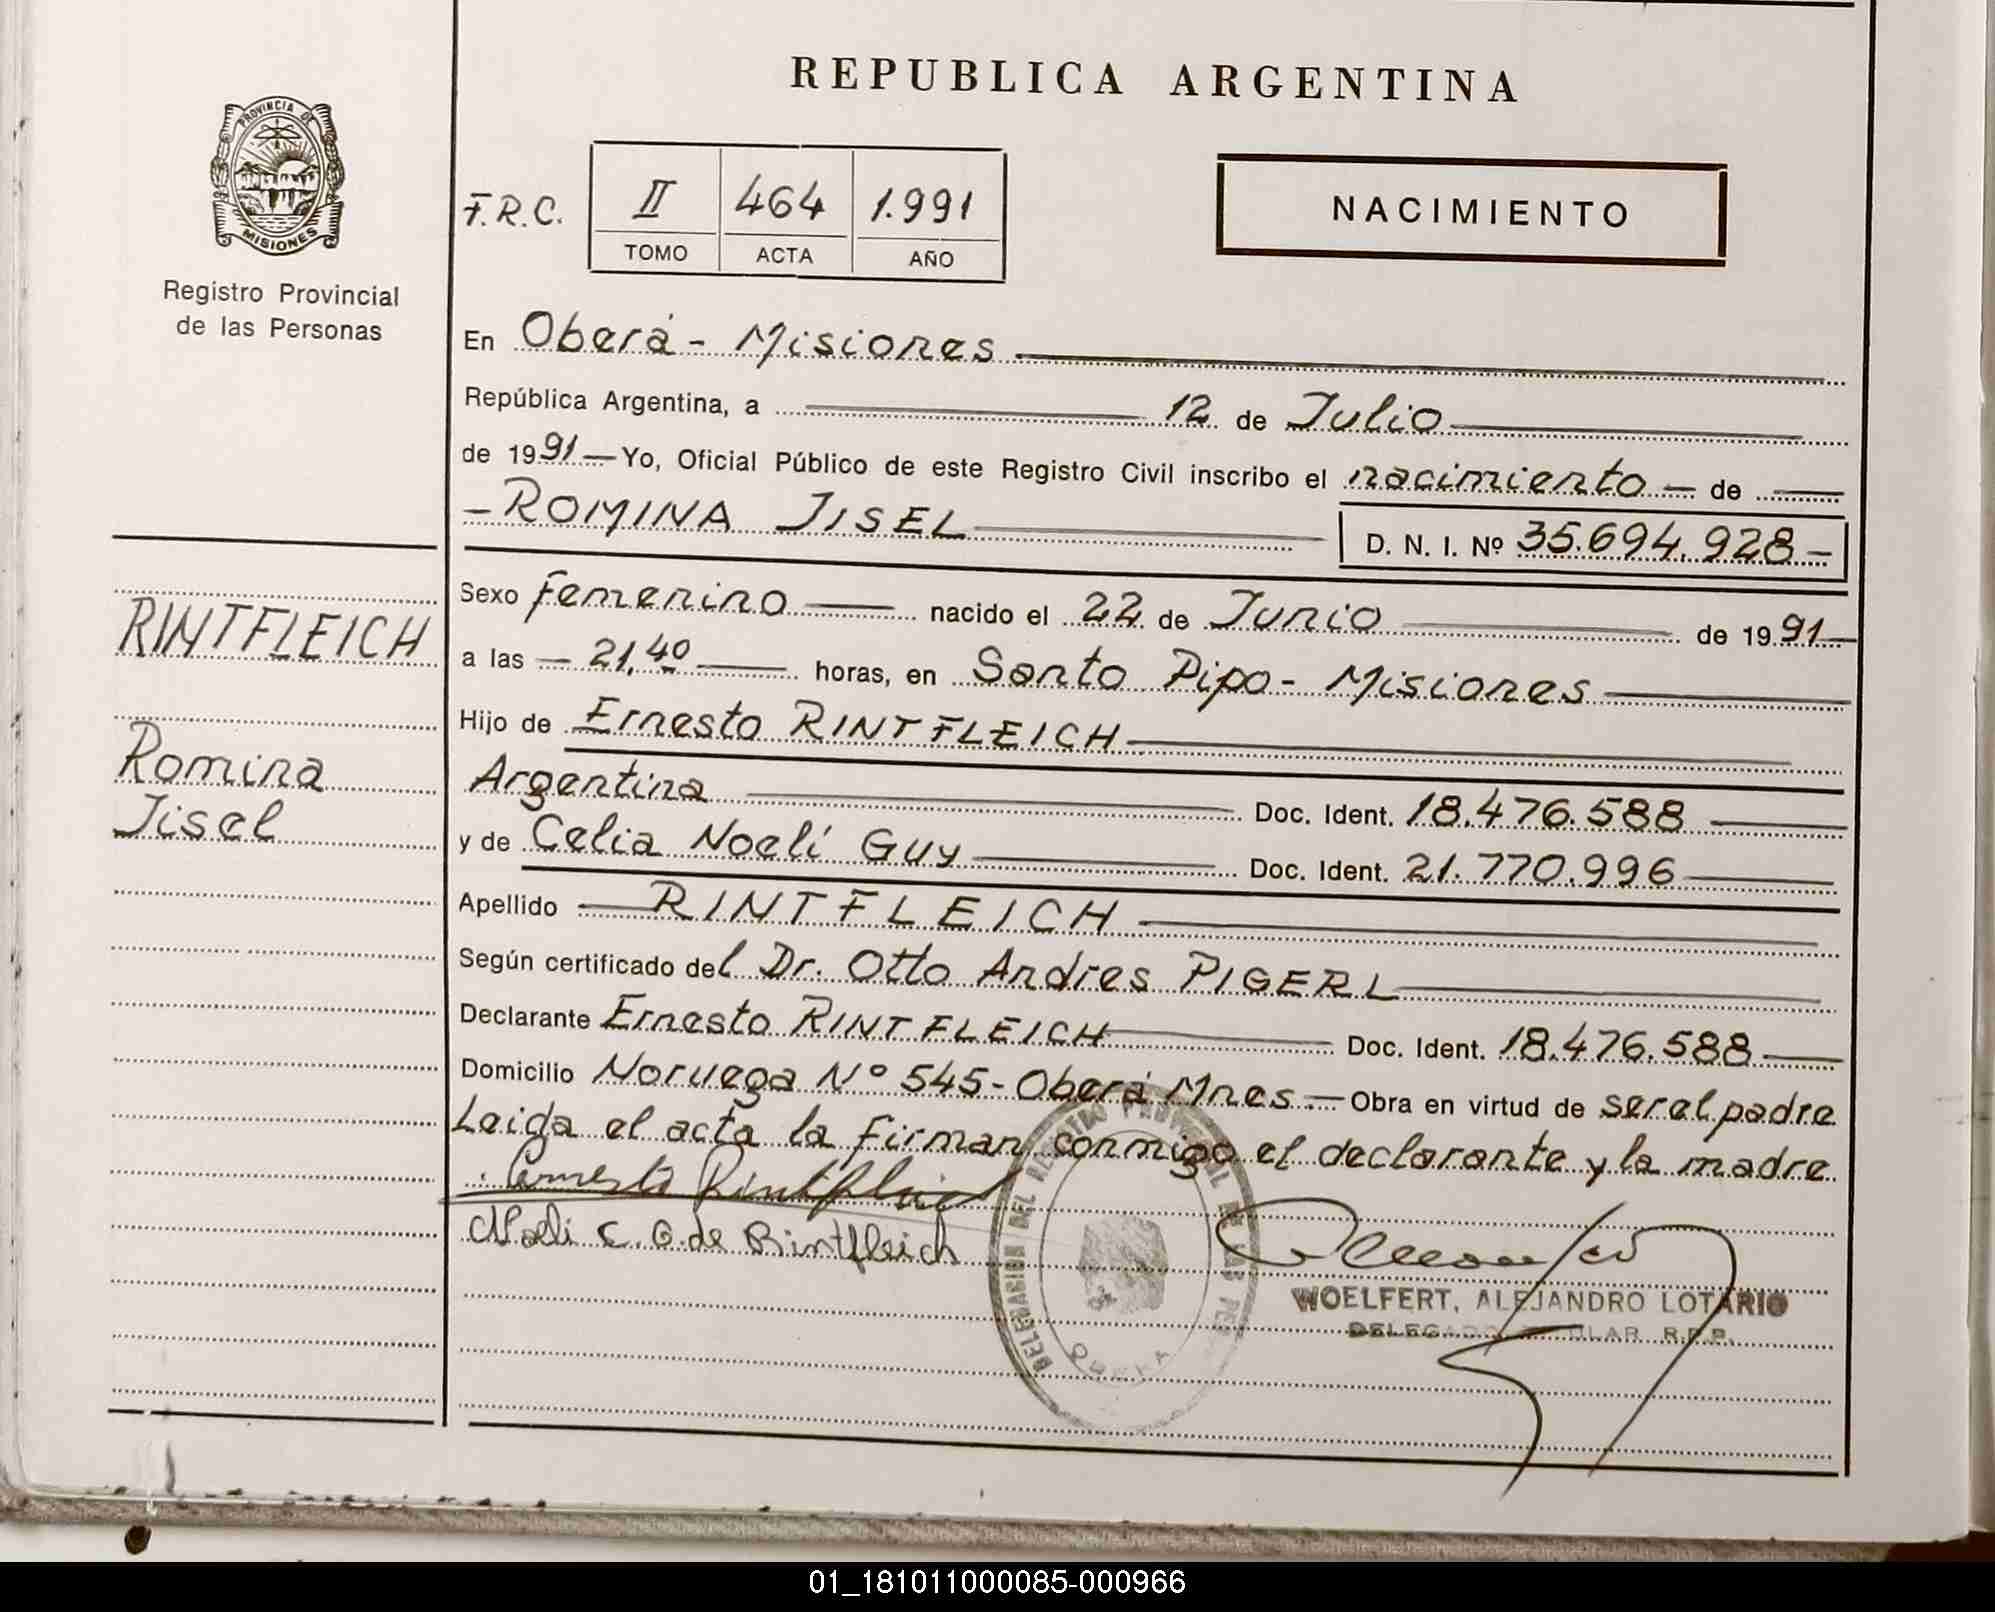 REPUBLICA ARGENTINA
PROVINCIA DE
MISIONES
Registro Provincial
de las Personas
F.R.C. II 464 1.991
TOMO ACTA AÑO
NACIMIENTO
En Oberá - Misiones
República Argentina, a 12 de Julio
de 1991 — Yo, Oficial Público de este Registro Civil inscribo el nacimiento — de —
- ROMINA JISEL
D. N. I. Nº 35.694.928 -
RINTFLEICH
Romina
Jisel
Sexo Femenino — nacido el 22 de Junio — de 1991 —
a las — 21,40 — horas, en Santo Pipo - Misiones
Hijo de Ernesto RINTFLEICH
Argentina — Doc. Ident. 18.476.588
y de Celia Noelí Guy — Doc. Ident. 21.770.996
Apellido — RINTFLEICH
Según certificado del Dr. Otto Andres PIGERL
Declarante Ernesto RINTFLEICH — Doc. Ident. 18.476.588
Domicilio Noruega Nº 545 - Oberá Mnes. — Obra en virtud de ser el padre
Leida el acta la firman conmigo el declarante y la madre
Ernesto Rintfleich
Noeli C. G. de Rintfleich
DELEGACION DEL REGISTRO PROVINCIAL DE LAS
OBERA
WOELFERT, ALEJANDRO LOTARIO
R.P.P.
01_181011000085-000966